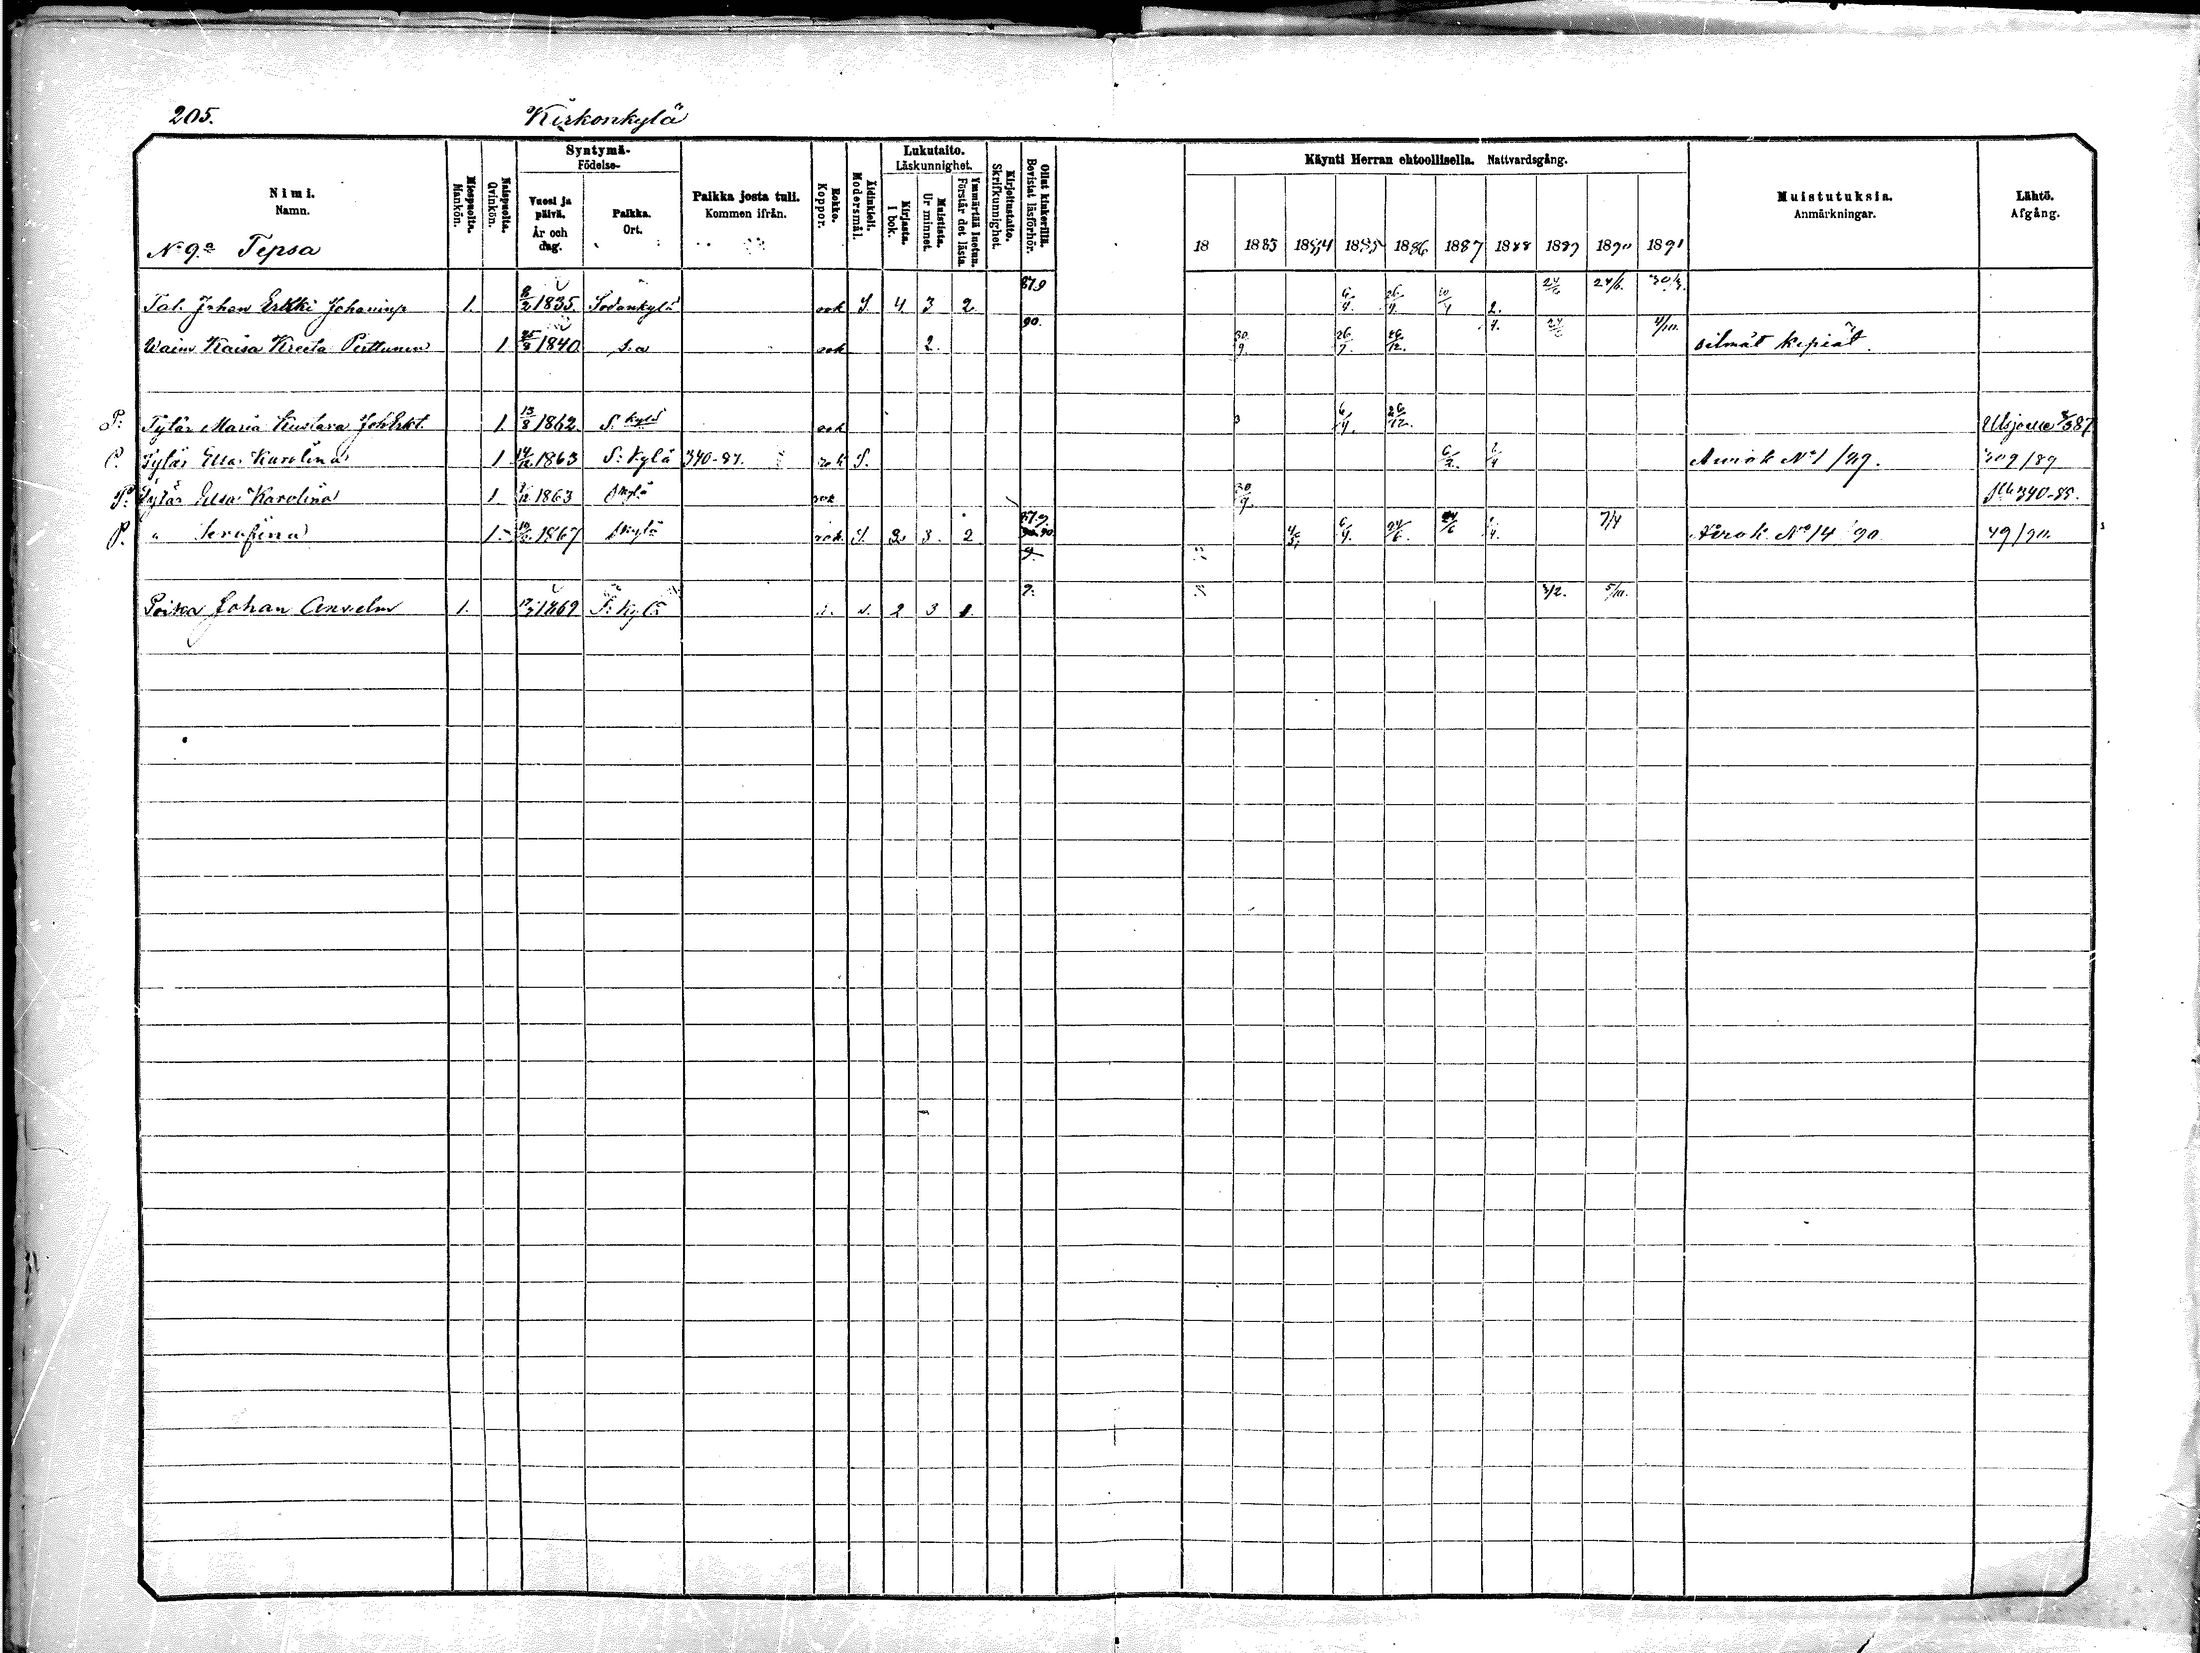 205. Kirkonkylä
Nimi. Namn. Miespuolia. Mankön. Naispuolia. Qvinkön. Syntymä- Födelse- Vuosi ja päivä. År och dag. Paikka. Ort. Paikka josta tuli. Kommen ifrån. Rokko. Koppor. Äidinkieli. Modersmål. Lukutaito. Läskunnighet. Kirjasta. I bok. Muistista. Ur minnet. Ymmärtää luetun. Förstår det lästa. Kirjoitustaito. Skrifkunnighet. Ollut kinkerillä. Bevistat läsförhör. Käynti Herran ehtoollisella. Nattvardsgång. Muistutuksia. Anmärkningar. Lähtö. Afgång.
18 1883 1884 1885 1886 1887 1888 1889 1890 1891
No 9.a Tepsa
Tal. Johan Erkki Johaninp 1. 8/2 1835. Sodankylä rok S. 4 3 2 879 6/4. 26/4. 10/4 2. 24/6 24/6.
Waim Kaisa Kreeta Perttunen 1 25/3 1840 S:a rok 2. 90. 30/9. 26/7. 26/12. 4. silmät kipiät.
P: Tytär Maria Kustava JohErkt. 1 13/8 1862 S. kylä rok 6/4. 26/12. Utsjoelle 3/3 87
P. Tytär Elsa Karolina 1 14/12 1863 S: kylä 340-87. rok S. 6/2. 2/4 No 1/89. 309/89
P. Tytär Elsa Karolina 1 1863 Skylä rok 30/9 340-85.
P. " Serafina 1 10/6 1867 Skylä rok. S. 2. 3. 2 879 90 9. 6/4. 24/6. 24/6 4. 7/4 No 14 '90 49/90.
Poika Johan Anselm 1. 1869 S: Kylä r. s. 2 3 1. 9. 3/2. 5/10.